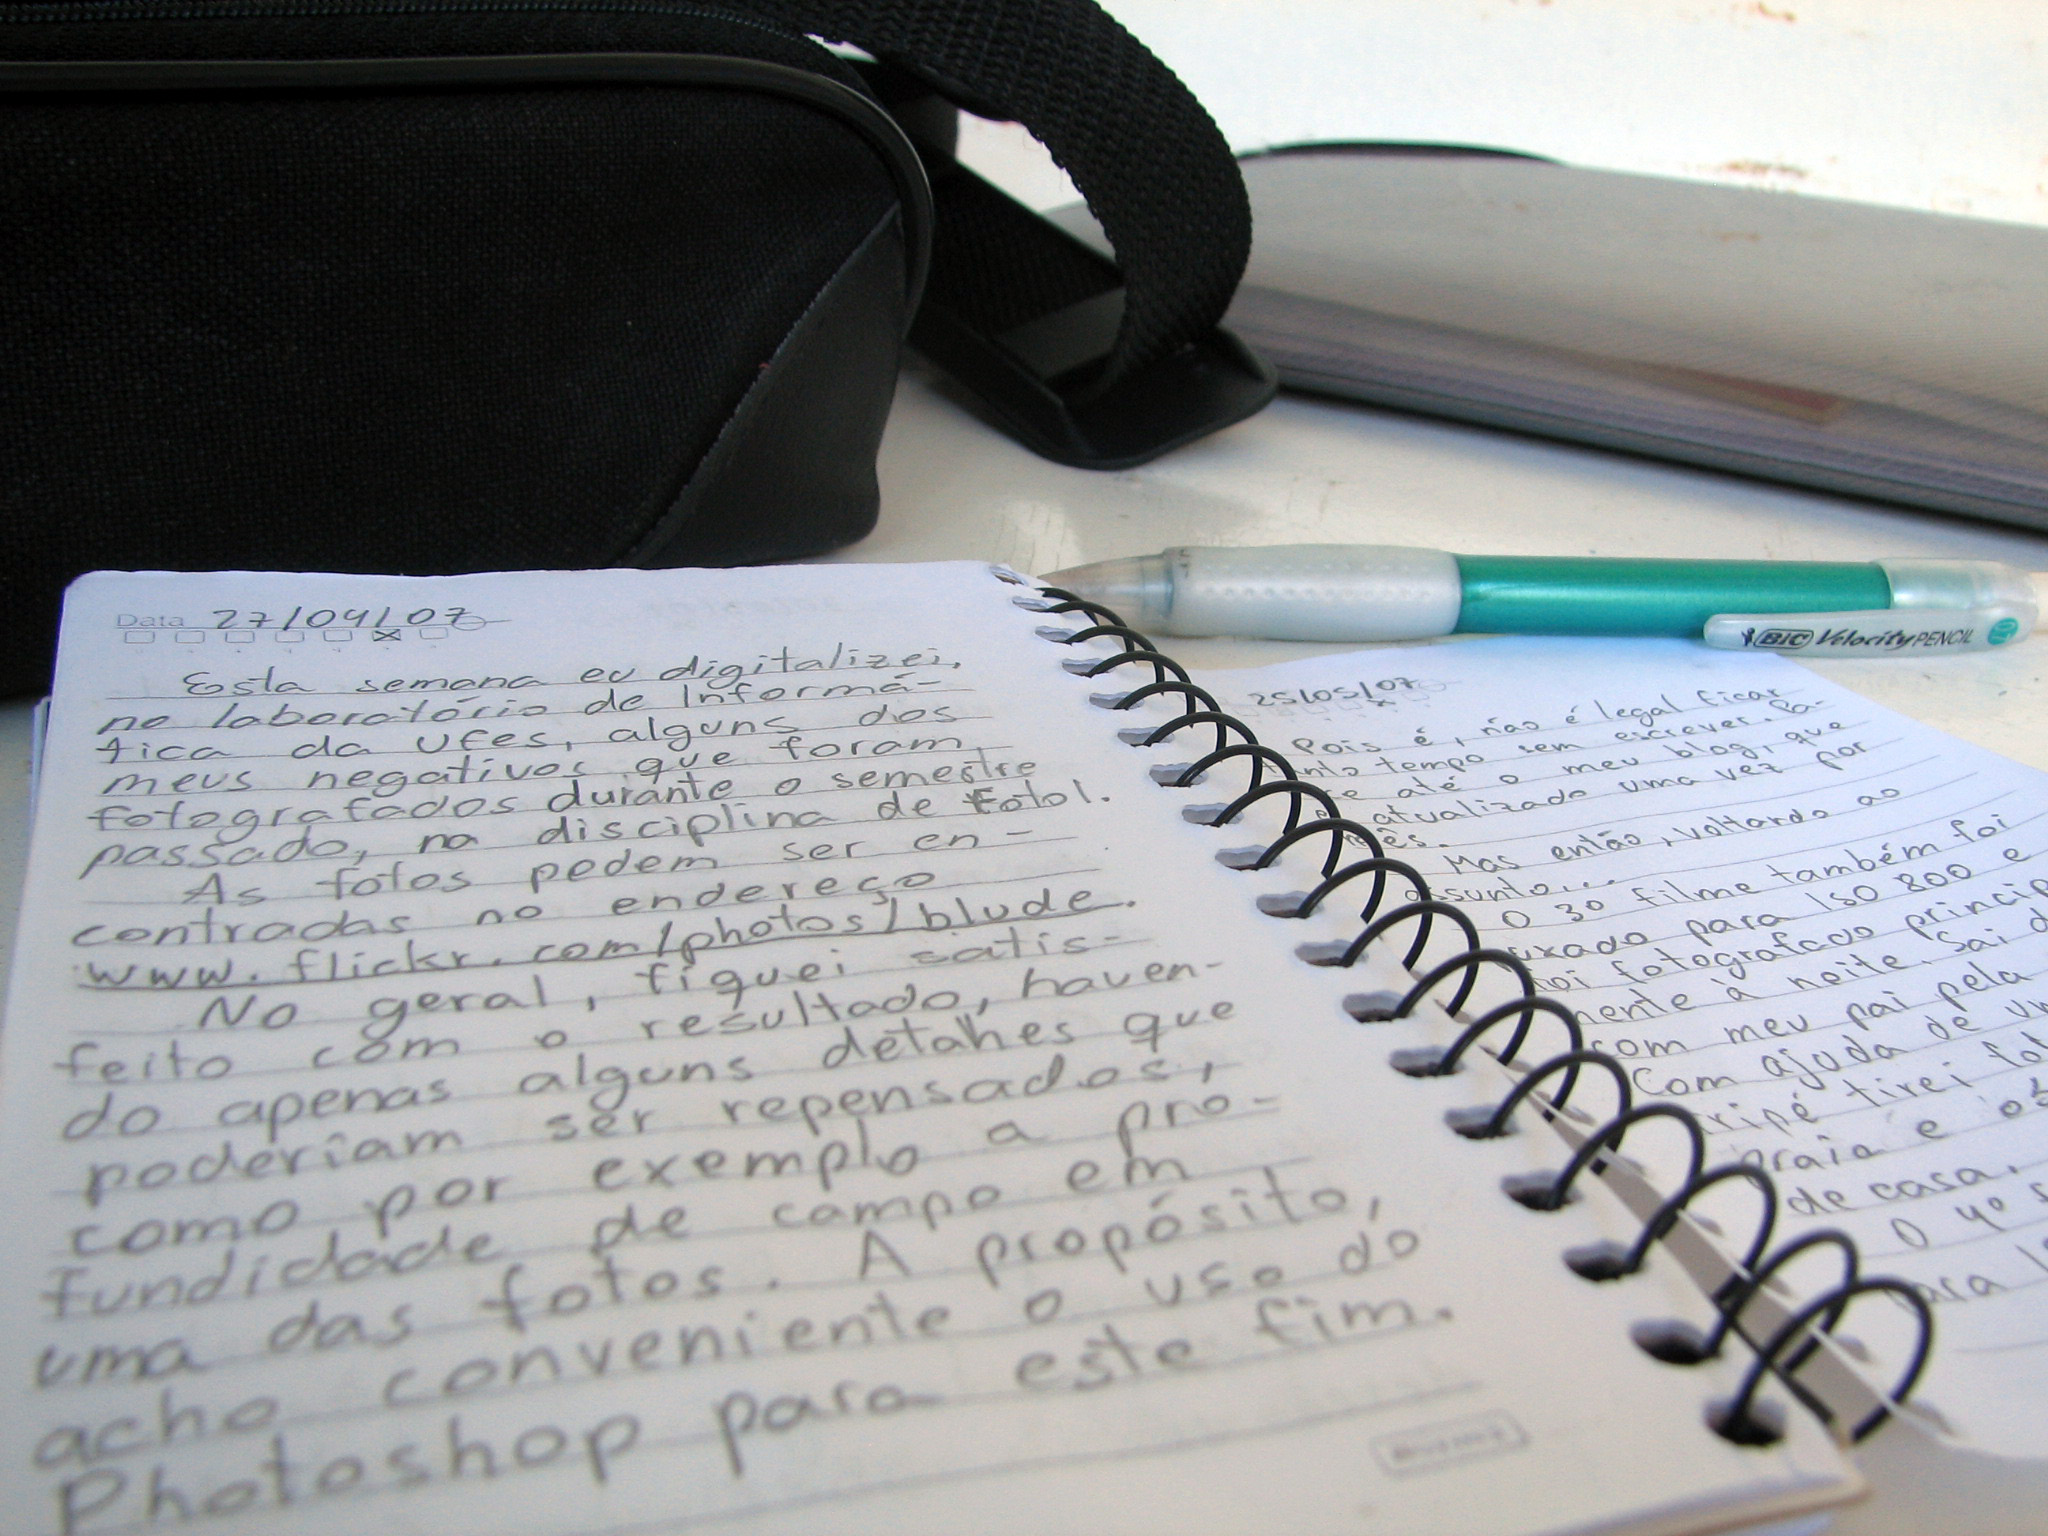 Data 27/04/07
Esta semana eu digitalizei,
no laboratório de Informá-
tica da Ufes, alguns dos
meus negativos que foram
fotografados durante o semestre
passado, na disciplina de Foto I.
As fotos podem ser en-
contradas no endereço
www.flickr.com/photos/blude.
No geral, fiquei satis-
feito com o resultado, haven-
do apenas alguns detalhes que
poderiam ser repensados,
como por exemplo a pro-
fundidade de campo em
uma das fotos. A propósito,
acho conveniente o uso do
Photoshop para este fim.
BIC Velocity PENCIL
25/05/07
Pois é, não é legal ficar
tanto tempo sem escrever. Pa-
re até o meu blog, que
é atualizado uma vez por
mês.
Mas então, voltando ao
assunto...
O 3º filme também foi
uxado para ISO 800 e
foi fotografado princip
mente à noite. Saí
com meu pai pela
Com ajuda de um
tripé tirei fot
praia e
de casa.
O 4º
para